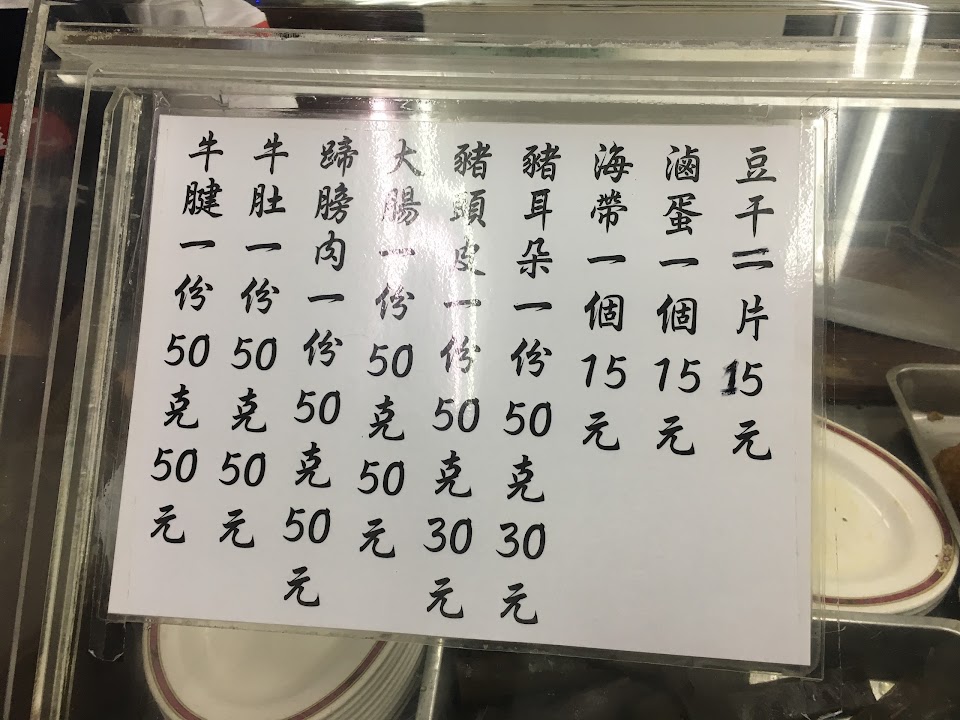 豆干二片15元
滷蛋一個15元
海帶一個15元
豬耳朵一份50克30元
豬頭皮一份50克30元
大腸一份50克50元
蹄膀肉一份50克50元
牛肚一份50克50元
牛腱一份50克50元